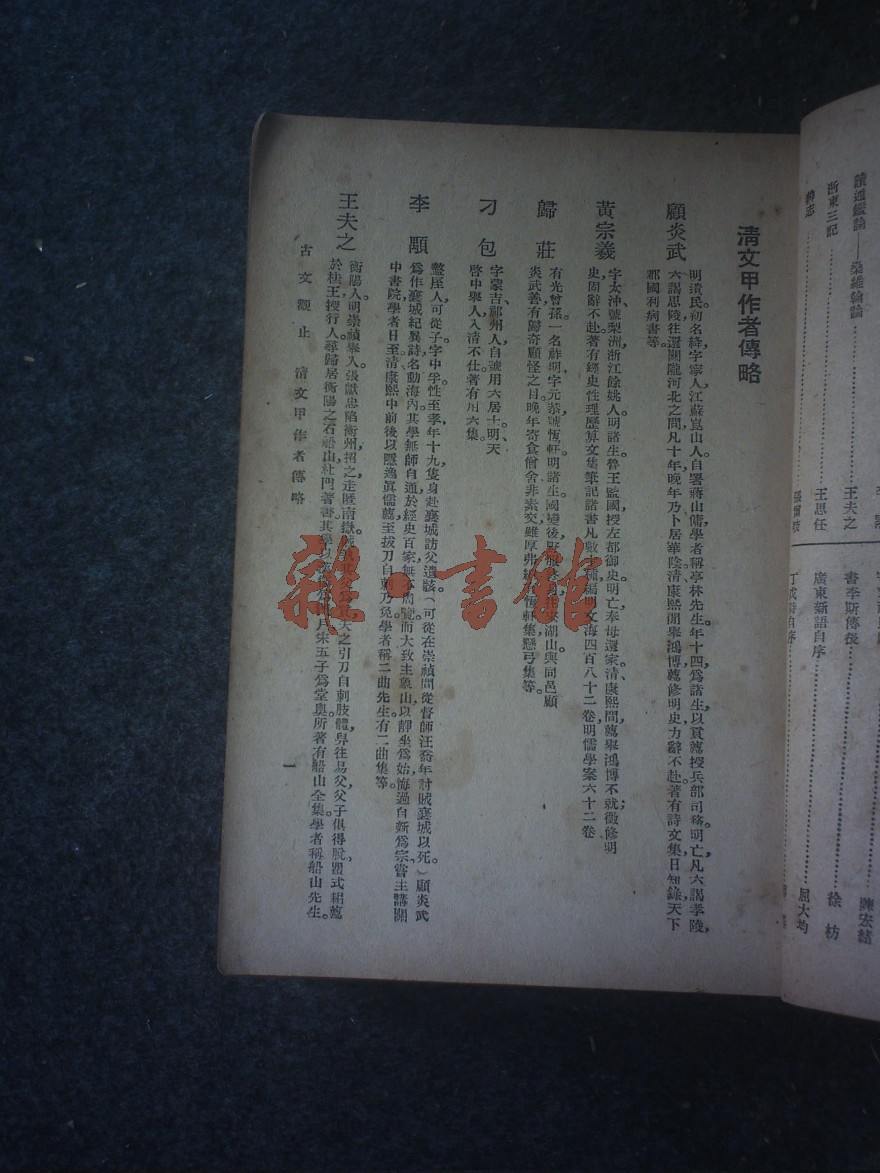 清文甲作者傳略
顧炎武
明遺民,初名絳,字寧人,江蘇崑山人,自署蔣山傭,學者稱亭林先生。年十四爲諸生,以貢薦授兵部司務。明亡,凡六謁孝陵,
六謁思陵,往還關隴河北之間,凡十年,晚年乃卜居華陰。清康熙間舉鴻博,薦修明史,力辭不赴。著有詩文集日知錄天下
郡國利病書等。
黃宗羲
字太沖,號梨洲,浙江餘姚人。明諸生。魯王監國,授左都御史。明亡,奉母還家。清康熙間薦舉鴻博,不就;徵修明
史,固辭不赴。著有經史性理歷算文集筆記諸書凡數 種,編明文海四百八十二卷,明儒學案六十二卷
歸莊
有光曾孫。一名祚明,字元恭,號恆軒。明諸生。國變後, 湖山。與同邑顧
炎武善,有歸奇顧怪之目。晚年寄食僧舍,非素交雖厚弗 恆軒集懸弓集等。
刁包
字蒙吉,祁州人,自號用六居士。明天
啓中舉人,入清不仕。著有用六集。
李顒
盩厔人,可從子,字中孚。性至孝,年十九,隻身赴襄城訪父遺骸(可從在崇禎間從督師汪喬年討賊襄城以死。)顧炎武
爲作襄城紀異詩,名動海內。其學無師自通,於經史百家無不周覽,而大致主象山,以靜坐爲始,悔過自新爲宗。嘗主講關
中書院,學者日至。清康熙中,前後以隱逸眞儒薦,至拔刀自刺乃免。學者稱二曲先生。有二曲集等。
王夫之
衡陽人。明崇禎舉人。張獻忠陷衡州,招之,走匿南嶽, 夫之引刀自刺肢體,舁往易父,父子俱得脫。瞿式耜薦
於桂王,授行人。尋歸居衡陽之石船山,杜門著書。其學以 宋五子爲堂奧。所著有船山全集。學者稱船山先生。
古文觀止 清文甲作者傳略
一
讀通鑑論——桑維翰論
王夫之
浙東三記
王思任
書李斯傳後
陳宏緒
廣東新語自序
徐枋
丁戊詩自序
屈大均
雜·書館